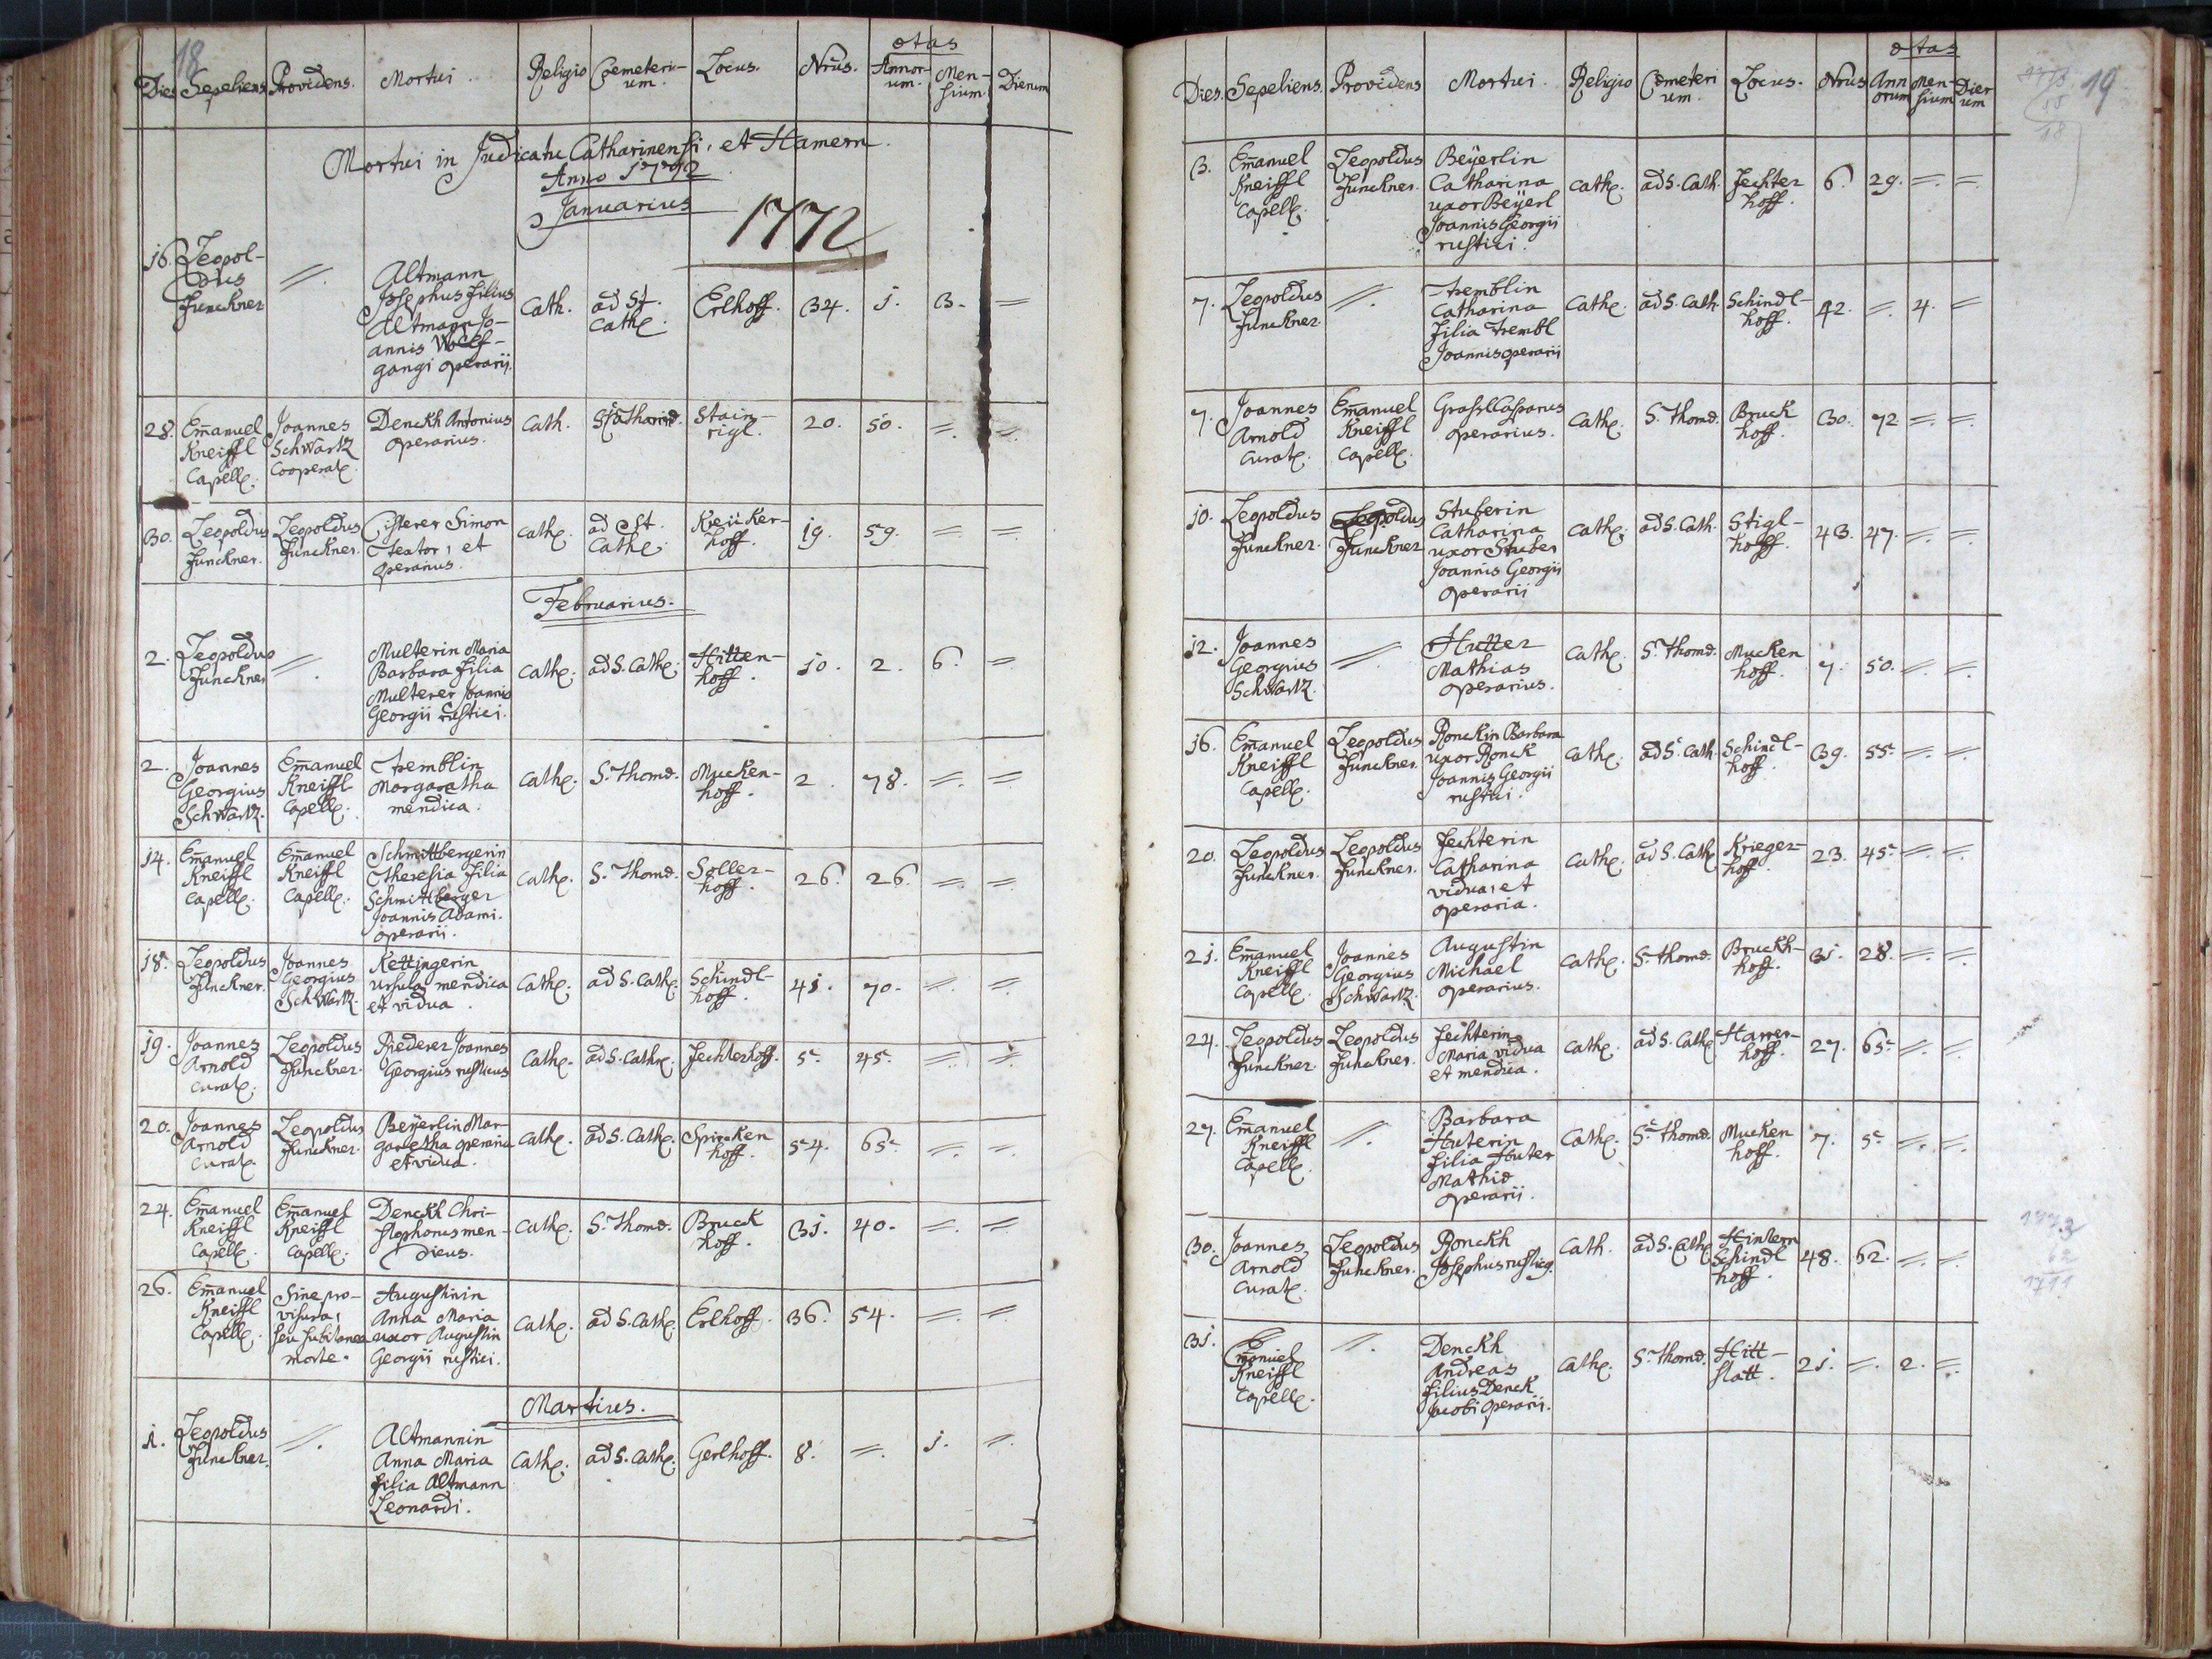 18
ætas
Dies Sepeliens Providens. Mortui. Religio Coemeteri- Locus. Nrus. Annor- Men- Dierum
um. um. sium.
Mortui in Judicatu Catharinensi, et Hamern.
Anno 1772
Januarius
1772
16. Leopol-
dus
Junckner
//.
Altmann
Josephus filius
Altmann Jo-
annis Wolf-
gangi operarii.
Cath.
ad St.
Cath.
Erlhoff. 34. 1. 3. =
28. Emanuel
Kneiffl
Capell.
Joannes
Schwartz
Cooperat.
Denckh Antonius
operarius.
Cath. St. Catharin.
Stain-
rigl.
20. 50. = =
30. Leopoldus
Junckner.
Leopoldus
Junckner.
Simon
textor, et
operarius.
Cath.
ad St.
Cath.
Kreücker-
hoff.
19. 59. = =
Februarius.
2. Leopoldus
Junckner
//.
Multerin Maria
Barbara filia
Multerer Joannis
Georgii rustici.
Cath. ad S. Cath.
Hitten-
hoff.
10. 2. 6. =
2. Joannes
Georgius
Schwartz.
Emanuel
Kneiffl
Capell.
Tremblin
Margaretha
mendica.
Cath. S. Thomæ.
Mucken-
hoff.
2. 78. = =
14. Emanuel
Kneiffl
Capell.
Emanuel
Kneiffl
Capell.
Schmittbergerin
Theresia filia
Schmittberger
Joannis Adami.
operarii.
Cath. S. Thomæ.
Soller-
hoff.
26. 26. = =
18. Leopoldus
Junckner.
Joannes
Georgius
Schwartz.
Kettingerin
Ursula mendica
et vidua.
Cath. ad S. Cath.
Schindl-
hoff.
41. 70. = =
19. Joannes
Arnold
Curat.
Leopoldus
Junckner.
Riederer Joannes
Georgius rusticus
Cath. ad S. Cath. Fechterhoff. 5. 45. = =
20. Joannes
Arnold
Curat.
Leopoldus
Junckner.
Beÿerlin Mar-
garetha operaria
et vidua.
Cath. ad S. Cath.
hoff.
54. 65. = =
24. Emanuel
Kneiffl
Capell.
Emanuel
Kneiffl
Capell.
Denckh Chri-
stophorus men-
dicus.
Cath. S. Thomæ.
Bruck
hoff.
31. 40. = =
26. Emanuel
Kneiffl
Capell.
Sine pro-
visura,
seu subitanea
morte.
Augustinin
Anna Maria
uxor Augustin
Georgii rustici.
Cath. ad S. Cath. Erlhoff. 36. 54. = =
Martius.
1. Leopoldus
Junckner.
//.
Altmannin
Anna Maria
filia Altmann
Leonardi.
Cath. ad S. Cath. Gerlhoff. 8. = 1. =
19
ætas
Dies. Sepeliens. Providens Mortui. Religio Cœmeteri Locus. Nrus Ann Men- Dier
um. orum sium um
18
3. Emanuel
Kneiffl
Capell.
Leopoldus
Junckner.
Beÿerlin
Catharina
uxor Beÿerl
Joannis Georgii
rustici.
Cath. ad S. Cath.
Fechter
hoff.
6. 29. = =
7. Leopoldus
Junckner.
//.
Tremblin
Catharina
filia Trembl
Joannis operarii
Cath. ad S. Cath.
Schindl-
hoff.
42. = 4. =
7. Joannes
Arnold
Curat.
Emanuel
Kneiffl
Capell.
Grassl Casparus
operarius.
Cath. S. Thomæ.
Bruck
hoff.
30. 72 = =
10. Leopoldus
Junckner.
Leopoldus
Junckner
Stuberin
Catharina
uxor Stuber
Joannis Georgii
operarii
Cath. ad S. Cath.
Stigl-
hoff.
43. 47. = =
12. Joannes
Georgius
Schwartz.
//
Hutter
Mathias
operarius.
Cath. S. Thomæ.
Mucken
hoff.
7. 50. = =
16. Emanuel
Kneiffl
Capell.
Leopoldus
Junckner.
Ronckin Barbara
uxor Ronck
Joannis Georgii
rustici.
Cath. ad S. Cath.
Schindl-
hoff.
39. 55. = =
20. Leopoldus
Junckner.
Leopoldus
Junckner.
Fechterin
Catharina
vidua, et
operaria.
Cath. ad S. Cath.
Krieger-
hoff.
23. 45. = =
21. Emanuel
Kneiffl
Capell.
Joannes
Georgius
Schwartz.
Augustin
Michael
operarius.
Cath. S. Thomæ.
Bruckh-
hoff.
31. 28. = =
24. Leopoldus
Junckner.
Leopoldus
Junckner.
Fechterin
Maria vidua
et mendica.
Cath. ad S. Cath.
Harrer-
hoff.
27. 65. = =
27. Emanuel
Kneiffl
Capell.
//.
Barbara
Huterin
filia Huter
Mathiæ
operarii.
Cath. S. Thomæ.
Mucken
hoff.
7. 5. = =
30. Joannes
Arnold
Curat.
Leopoldus
Junckner.
Ronckh
Josephus rusticq.
Cath. ad S. Cath.
Hintern
Schindl
hoff.
48. 62. = =
31. Emanuel
Kneiffl
Capell.
//.
Denckh
Andreas
filius Denck
Jacobi operarii.
Cath. S. Thomæ.
Hitt-
statt.
21. = 2. =